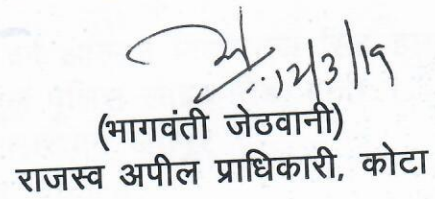 12/3/19
(भागवंती जेठवानी)
राजस्व अपील प्राधिकारी, कोटा